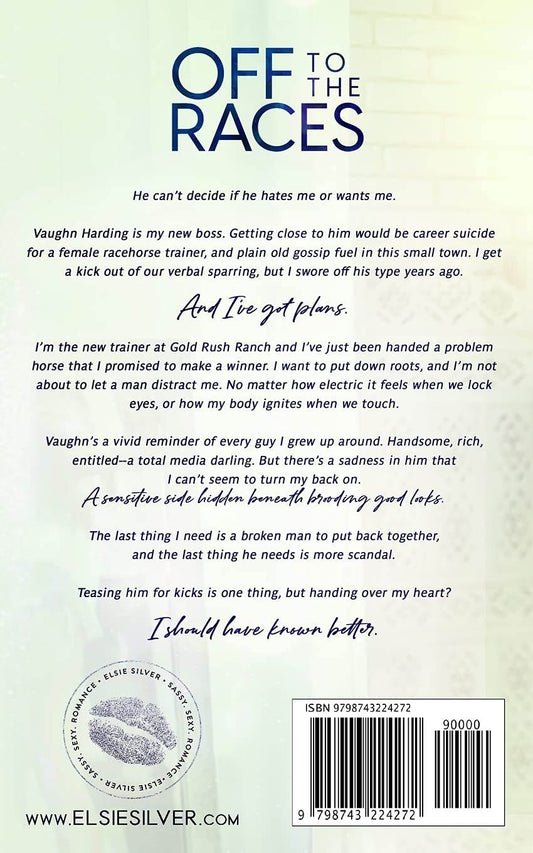 OFF TO THE
RACES
He can't decide if he hates me or wants me.
Vaughn Harding is my new boss. Getting close to him would be career suicide
for a female racehorse trainer, and plain old gossip fuel in this small town. I get
a kick out of our verbal sparring, but I swore off his type years ago.
And I've got plans.
I'm the new trainer at Gold Rush Ranch and I've just been handed a problem
horse that I promised to make a winner. I want to put down roots, and I'm not
about to let a man distract me. No matter how electric it feels when we lock
eyes, or how my body ignites when we touch.
Vaughn's a vivid reminder of every guy I grew up around. Handsome, rich,
entitled--a total media darling. But there's a sadness in him that
I can't seem to turn my back on.
A sensitive side hidden beneath brooding good looks.
The last thing I need is a broken man to put back together,
and the last thing he needs is more scandal.
Teasing him for kicks is one thing, but handing over my heart?
I should have known better.
ELSIE SILVER • SASSY. SEXY. ROMANCE • ELSIE SILVER • SASSY. SEXY. ROMANCE •
WWW.ELSIESILVER.COM
ISBN 9798743224272
90000
9 798743 224272